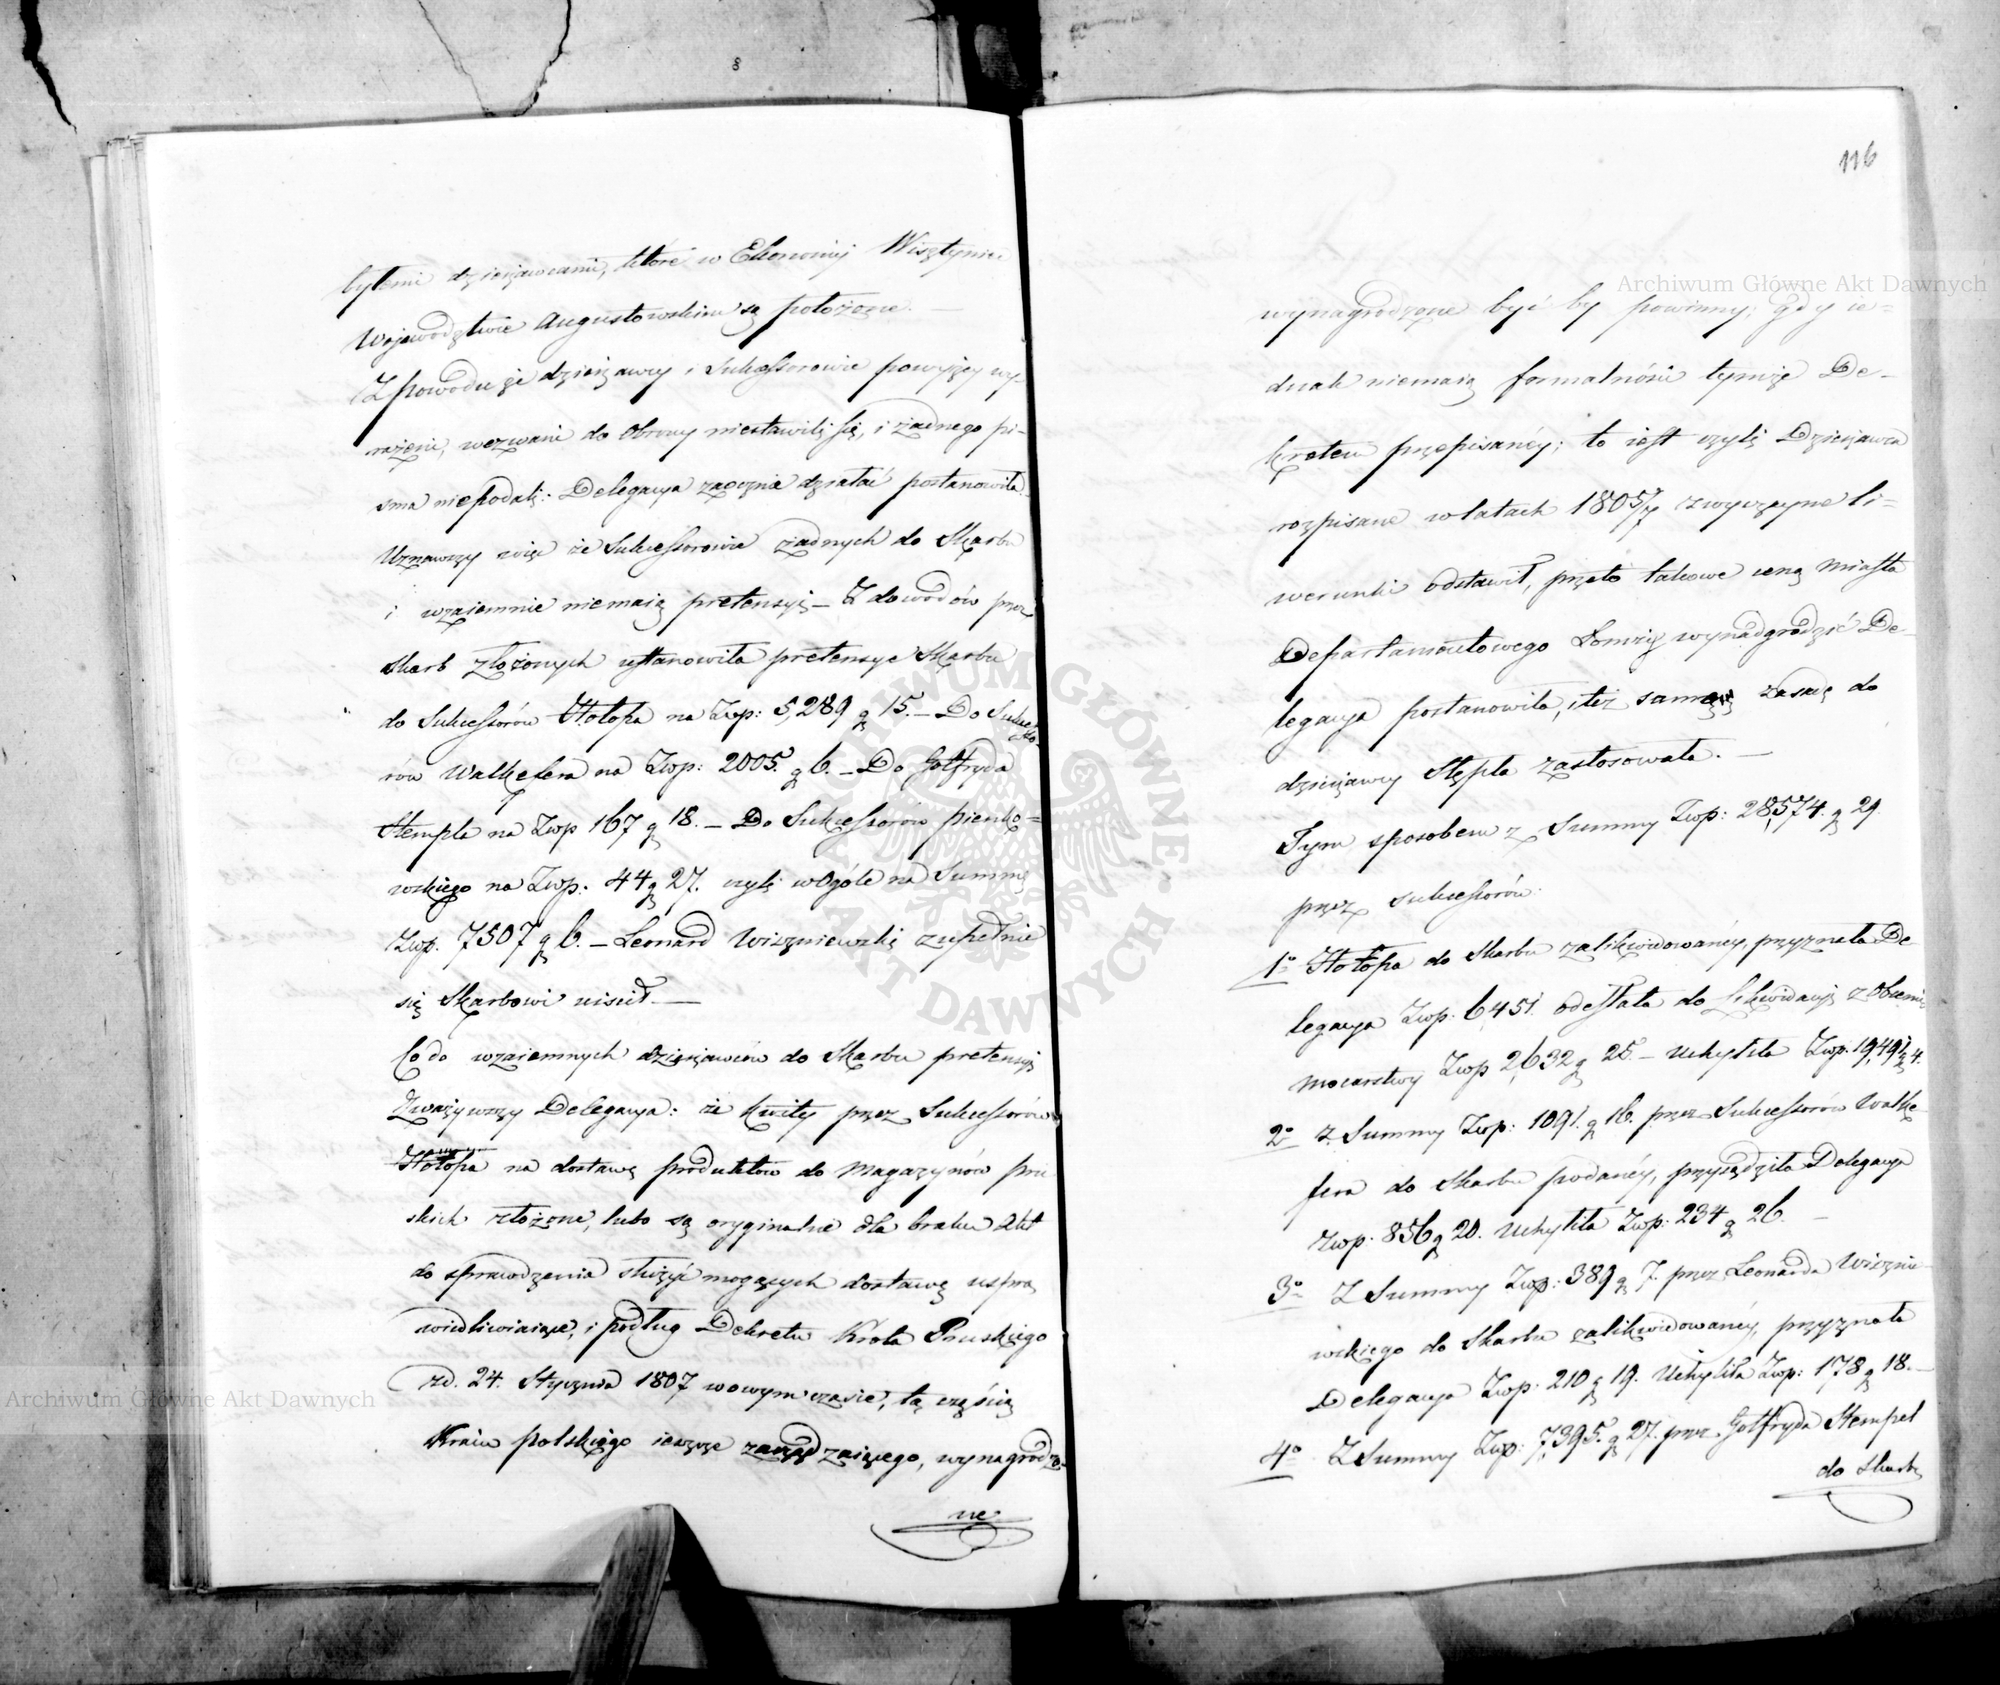 116
byłemi dzierżawcami, które w Ekonomij Wisztyniec
Województwie Augustowskim są położone. —
Z powodu że dzierżawcy i Sukcessorowie powyżey wy-
rażeni, wezwani do obrony niestawili się, i żadnego pi-
sma niepodali: Delegacya zaocznie działać postanowiła.
Uznawszy więc że Sukcessorowie żadnych do Skarbu
i wzaiemnie niemaią pretensyi — Z dowodów przez
Skarb złożonych ustanowiła pretensye Skarbu
do Sukcessorów Hołopa na Zwp: 5,289 g 15. — Do Sukcesso-
rów Walkefera na Zwp: 2005. g 6. — Do Gotfryda
Stempla na Zwp 167 g 18. — Do Sukcessorów Pienko-
wskiego na Zwp: 44 g 27. czyli wOgóle na Summę
Zwp. 7507 g 6. — Leonard Wiszniewski zupełnie
się Skarbowi uiścił. —
Co do wzaiemnych dzierżawców do Skarbu pretensyi
Zważywszy Delegacya: że kwity przez Sukcessorów
Hołopa na dostawę produktów do Magazynów pru-
skich złożone, lubo są oryginalne dla braku Akt
do sprawdzenia służyć mogących dostawę uspra
wiedliwiaiące, i podług Dekretu Króla Pruskiego
zd. 24. Stycznia 1807 wowym czasie, tą częścią
Kraiu polskiego ieszcze zarządzaiącego, wynagrodzo-
ne
wynagrodzone być by powinny; gdy ie-
dnak niemaią formalności tymże De-
kretem przepisanéy; to iest czyli Dzierżawca
rozpisane wlatach 1805/7 zwyczayne li-
werunki odstawił, przeto takowe ceną Miasta
Departamentowego Łomży wynadgrodzić De-
legacya postanowiła, też samą zasadę do
dzierżawcy Stępla zastosowała. —
Tym sposobem z Summy Zwp: 28,574. g 29.
przez sukcessorów:
1o Hołopa do Skarbu zalikwidowanéy, przyznała De
legacya Zwp. 6,451. odesłała do Likwidacyi z Obcemi
mocarstwy Zwp 2,632 g 25. — Uchyliła Zwp. 19,491 g 4.
2o z Summy Zwp: 1091. g 16. przez Sukcessorów Walke
fera do Skarbu podanéy, przysądziła Delegacya
Zwp. 856 g 20. Uchyliła Zwp: 234 g 26. —
3o Z Summy Zwp: 389 g 7. przez Leonarda Wisznie-
wskiego do Skarbu zalikwidowanéy, przyznała
Delegacya Zwp: 210 g 19. Uchyliła Zwp: 178 g 18. —
4o Z Summy Zwp: 7,395. g 27. przez Gotfryda Stempel
do Skarbu
Archiwum Główne Akt Dawnych
Archiwum Główne Akt Dawnych
ARCHIWUM GŁÓWNE AKT DAWNYCH